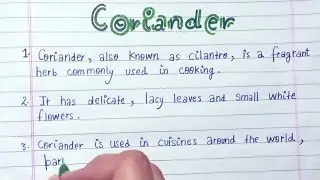 Coriander
1. Coriander, also known as cilantro, is a fragrant
herb commonly used in cooking.
2. It has delicate, lacy leaves and small white
flowers.
3. Coriander is used in cuisines around the world,
par